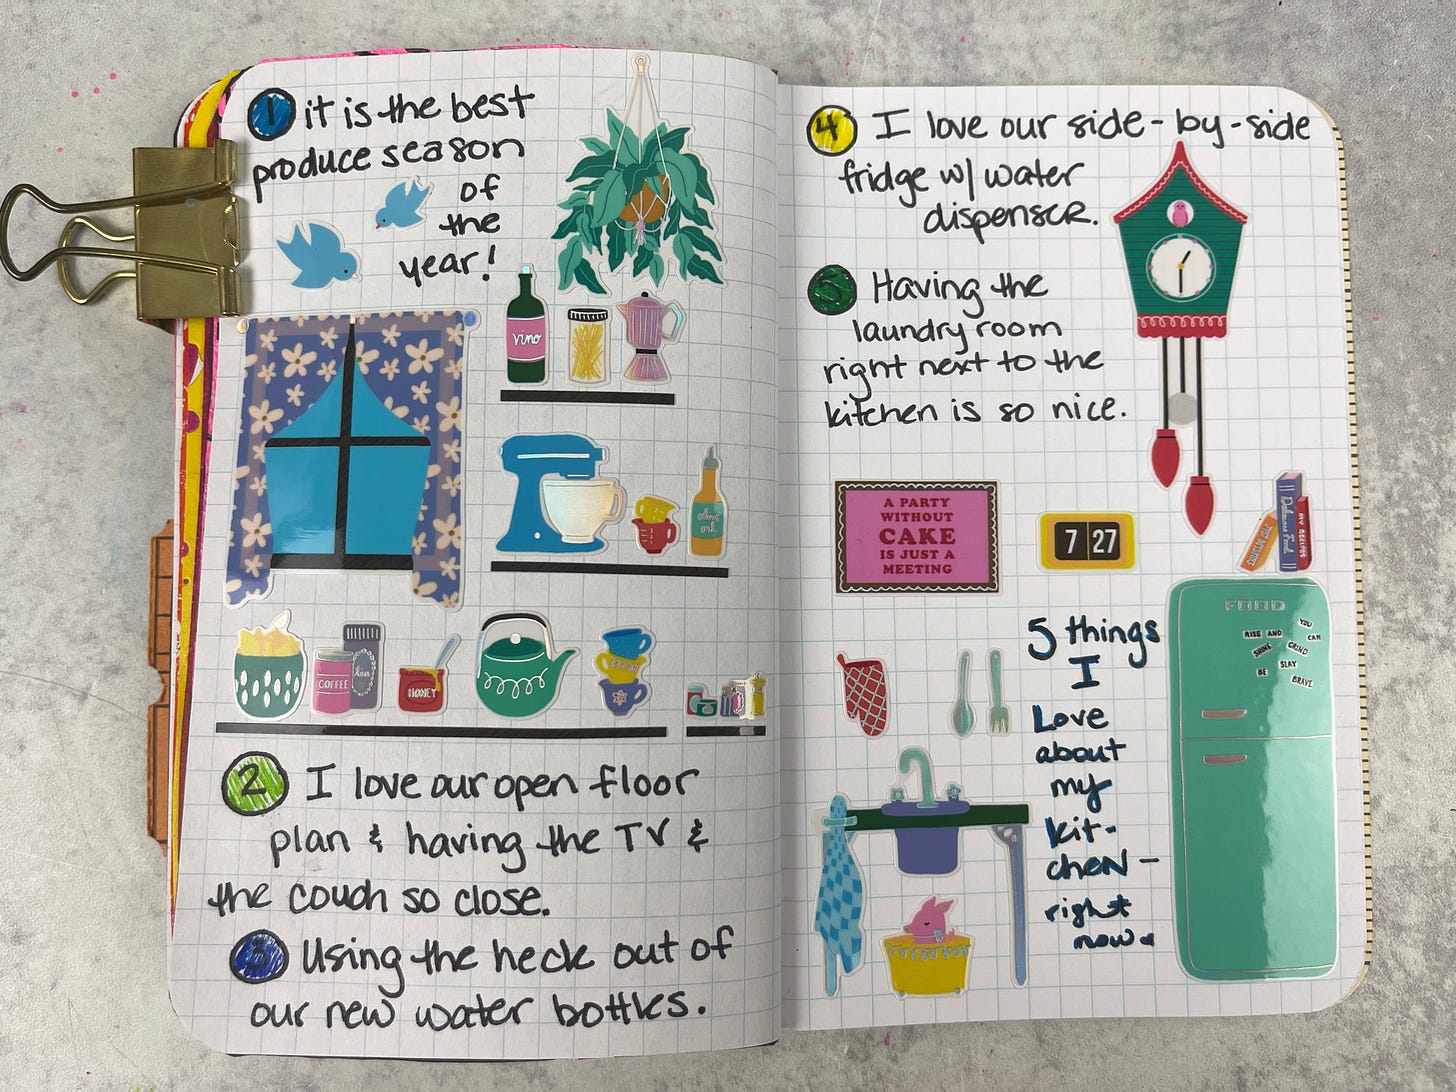 1 it is the best
produce season
of
the
year!
vino
olive
oil
COFFEE
tea
HONEY
2 I love our open floor
plan & having the TV &
the couch so close.
3 Using the heck out of
our new water bottles.
4 I love our side-by-side
fridge w/ water
dispenser.
5 Having the
laundry room
right next to the
kitchen is so nice.
A PARTY
WITHOUT
CAKE
IS JUST A
MEETING
7 27
Delicious Food
MY RECIPES
5 things
I
Love
about
my
kit-
chen –
right
now.
FOOD
YOU
CAN
RISE AND
SHINE
GRIND
SLAY
BE
BRAVE